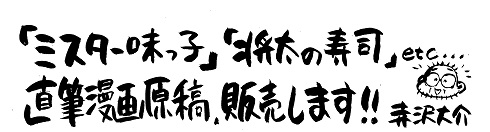 「ミスター味っ子」「将太の寿司」etc...
直筆漫画原稿、販売します!! 寺沢大介